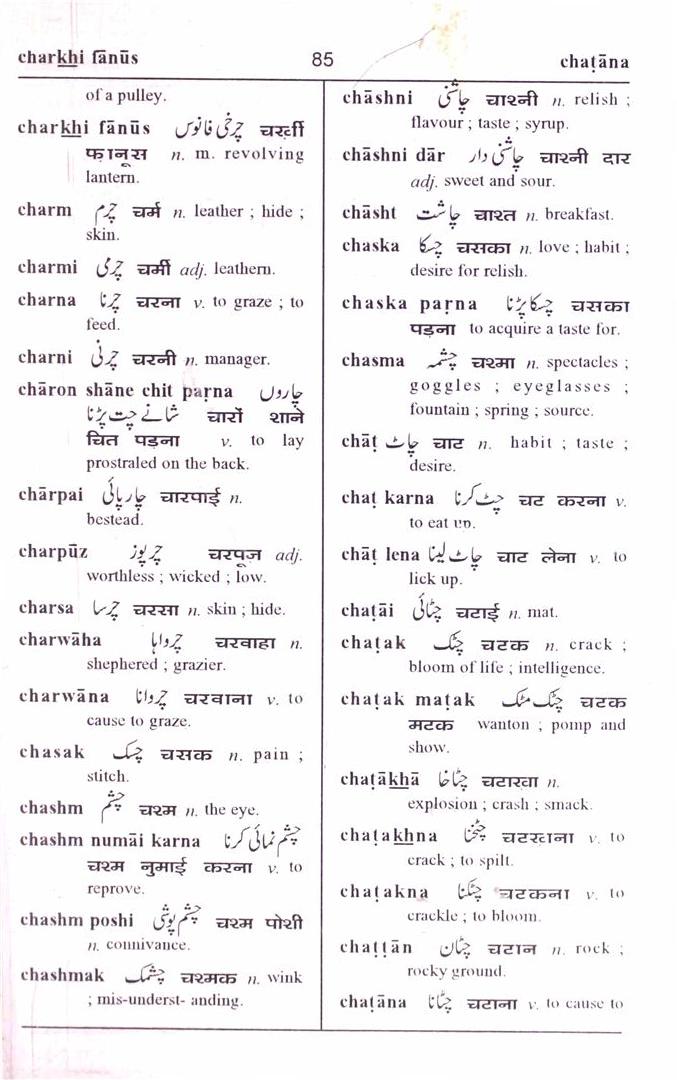 charkhi fānūs
85
chaṭāna
of a pulley.
charkhi fānūs چرخی فانوس चरखी
फ़ानूस n. m. revolving
lantern.
charm چرم चर्म n. leather ; hide ;
skin.
charmi چرمی चर्मी adj. leathern.
charna چرنا चरना v. to graze ; to
feed.
charni چرنی चरनी n. manager.
chāron shāne chit paṛna چاروں
شانے چت پڑنا चारों शाने
चित पड़ना v. to lay
prostraled on the back.
chārpai چارپائی चारपाई n.
bestead.
charpūz چرپوز चरपूज़ adj.
worthless ; wicked ; low.
charsa چرسا चरसा n. skin ; hide.
charwāha چرواہا चरवाहा n.
shephered ; grazier.
charwāna چروانا चरवाना v. to
cause to graze.
chasak چسک चसक n. pain ;
stitch.
chashm چشم चश्म n. the eye.
chashm numāi karna چشم نمائی کرنا
चश्म नुमाई करना v. to
reprove.
chashm poshi چشم پوشی चश्म पोशी
n. connivance.
chashmak چشمک चश्मक n. wink
; mis-underst- anding.
chāshni چاشنی चाश्नी n. relish ;
flavour ; taste ; syrup.
chāshni dār چاشنی دار चाश्नी दार
adj. sweet and sour.
chāsht چاشت चाश्त n. breakfast.
chaska چسکا चसका n. love ; habit ;
desire for relish.
chaska paṛna چسکا پڑنا चसका
पड़ना to acquire a taste for.
chasma چشمہ चश्मा n. spectacles ;
goggles ; eyeglasses ;
fountain ; spring ; source.
chāṭ چاٹ चाट n. habit ; taste ;
desire.
chaṭ karna چٹ کرنا चट करना v.
to eat up.
chāṭ lena چاٹ لینا चाट लेना v. to
lick up.
chaṭāi چٹائی चटाई n. mat.
chaṭak چٹک चटक n. crack ;
bloom of life ; intelligence.
chaṭak maṭak چٹک مٹک चटक
मटक wanton ; pomp and
show.
chaṭākhā چٹاخا चटाखा n.
explosion ; crash ; smack.
chaṭakhna چٹخنا चटखना v. to
crack ; to spilt.
chaṭakna چٹکنا चटकना v. to
crackle ; to bloom.
chaṭṭān چٹان चटान n. rock ;
rocky ground.
chaṭāna چٹانا चटाना v. to cause to